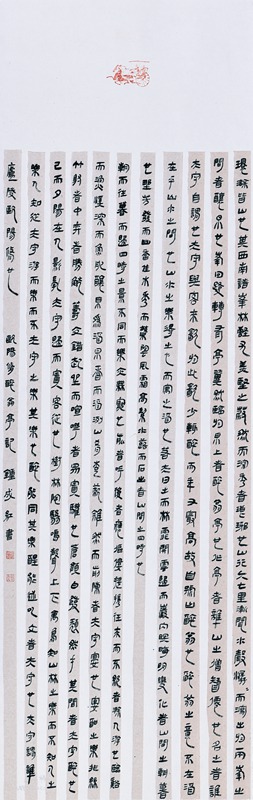 環滁皆山也其西南諸峯林壑尤美望之蔚然而深秀者琅邪也山行六七里漸聞水聲潺潺而瀉出于兩峯之
間者釀泉也峯回路轉有亭翼然臨於泉上者醉翁亭也作亭者誰山之僧智僊也名之者誰
太守自謂也太守與客來飲於此飲少輒醉而年又最高故自號曰醉翁也醉翁之意不在酒
在乎山水之間也山水之樂得之心而寓之酒也若夫日出而林霏開雲歸而巖穴暝晦明變化者山間之朝暮
也野芳發而幽香佳木秀而繁陰風霜高潔水落而石出者山間之四時也
朝而往暮而歸四時之景不同而樂亦無窮也前者呼後者應傴僂提攜往來而不絕者滁人游也臨谿
而漁谿深而魚肥釀泉為酒泉香而酒洌山肴野蔌雜然而前陳者太守宴也宴酣之樂非絲
竹射者中弈者勝觥籌交錯起坐而諠譁者眾賓懽也蒼顏白髮頹然乎其間者太守醉也
已而夕陽在山人影散亂太守歸而賓客從也樹林陰翳鳴聲上下禽鳥知山林之樂而不知人之
樂人知從太守游而樂而不知太守之樂其樂也醉能同其樂醒能述以文者太守也太守謂誰
廬陵歐陽修也 歐陽修醉翁亭記 鐘成書